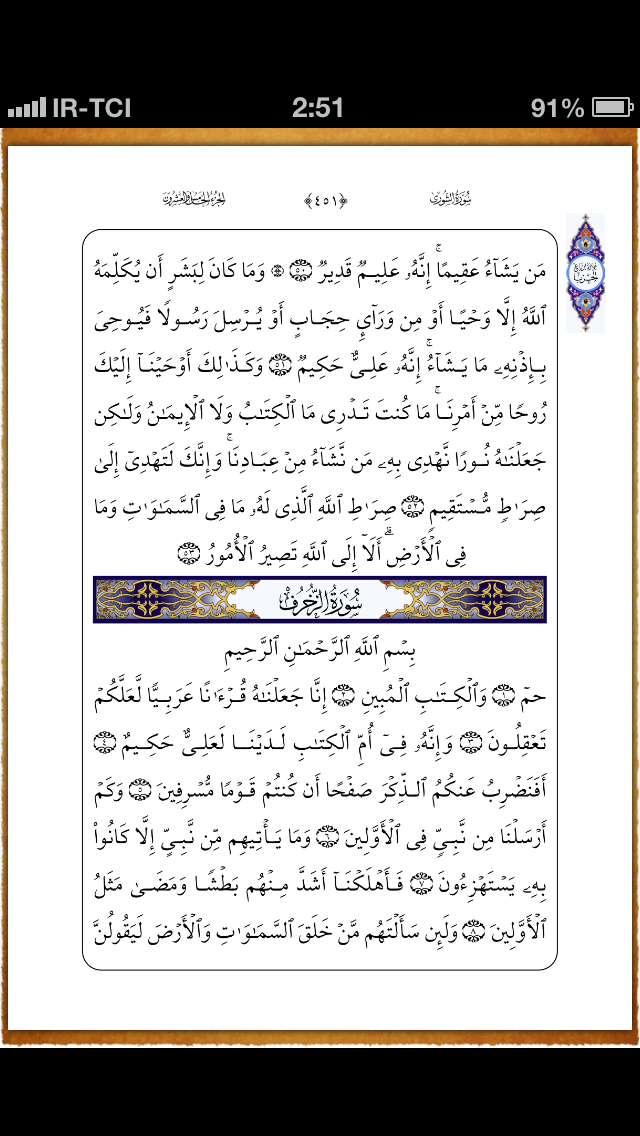 IR-TCI 2:51 91%
سُورَةُ الشُّورَىٰ ﴿٤٥١﴾ الجُزْءُ الخَامِسُ وَالعِشْرُونَ
مَن يَشَآءُ عَقِيمًاۚ إِنَّهُۥ عَلِيمٌ قَدِيرٌ ٥٠ ۞ وَمَا كَانَ لِبَشَرٍ أَن يُكَلِّمَهُ
ٱللَّهُ إِلَّا وَحْيًا أَوْ مِن وَرَآيِٕ حِجَابٍ أَوْ يُرْسِلَ رَسُولًا فَيُوحِىَ
بِإِذْنِهِۦ مَا يَشَآءُۚ إِنَّهُۥ عَلِىٌّ حَكِيمٌ ٥١ وَكَذَٰلِكَ أَوْحَيْنَآ إِلَيْكَ
رُوحًا مِّنْ أَمْرِنَاۚ مَا كُنتَ تَدْرِى مَا ٱلْكِتَٰبُ وَلَا ٱلْإِيمَٰنُ وَلَٰكِن
جَعَلْنَٰهُ نُورًا نَّهْدِى بِهِۦ مَن نَّشَآءُ مِنْ عِبَادِنَاۚ وَإِنَّكَ لَتَهْدِىٓ إِلَىٰ
صِرَٰطٍ مُّسْتَقِيمٍ ٥٢ صِرَٰطِ ٱللَّهِ ٱلَّذِى لَهُۥ مَا فِى ٱلسَّمَٰوَٰتِ وَمَا
فِى ٱلْأَرْضِۗ أَلَآ إِلَى ٱللَّهِ تَصِيرُ ٱلْأُمُورُ ٥٣
سُورَةُ الزُّخْرُفِ
بِسْمِ ٱللَّهِ ٱلرَّحْمَٰنِ ٱلرَّحِيمِ
حمٓ ١ وَٱلْكِتَٰبِ ٱلْمُبِينِ ٢ إِنَّا جَعَلْنَٰهُ قُرْءَٰنًا عَرَبِيًّا لَّعَلَّكُمْ
تَعْقِلُونَ ٣ وَإِنَّهُۥ فِىٓ أُمِّ ٱلْكِتَٰبِ لَدَيْنَا لَعَلِىٌّ حَكِيمٌ ٤
أَفَنَضْرِبُ عَنكُمُ ٱلذِّكْرَ صَفْحًا أَن كُنتُمْ قَوْمًا مُّسْرِفِينَ ٥ وَكَمْ
أَرْسَلْنَا مِن نَّبِىٍّ فِى ٱلْأَوَّلِينَ ٦ وَمَا يَأْتِيهِم مِّن نَّبِىٍّ إِلَّا كَانُوا۟
بِهِۦ يَسْتَهْزِءُونَ ٧ فَأَهْلَكْنَآ أَشَدَّ مِنْهُم بَطْشًا وَمَضَىٰ مَثَلُ
ٱلْأَوَّلِينَ ٨ وَلَئِن سَأَلْتَهُم مَّنْ خَلَقَ ٱلسَّمَٰوَٰتِ وَٱلْأَرْضَ لَيَقُولُنَّ